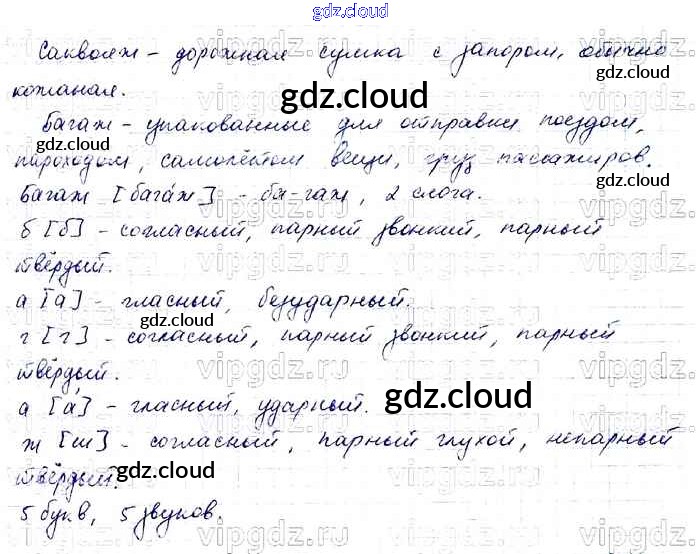 gdz.cloud
Саквояж - дорожная сумка с запором, обычно
кожаная.
Багаж - упакованные для отправки поездом,
пароходом, самолётом вещи, груз пассажиров.
Багаж [бага́ж] - ба-гаж, 2 слога.
б [б] - согласный, парный звонкий, парный
твёрдый.
а [а] - гласный, безударный.
г [г] - согласный, парный звонкий, парный
твёрдый.
а [а́] - гласный, ударный.
ж [ш] - согласный, парный глухой, непарный
твёрдый.
5 букв, 5 звуков.